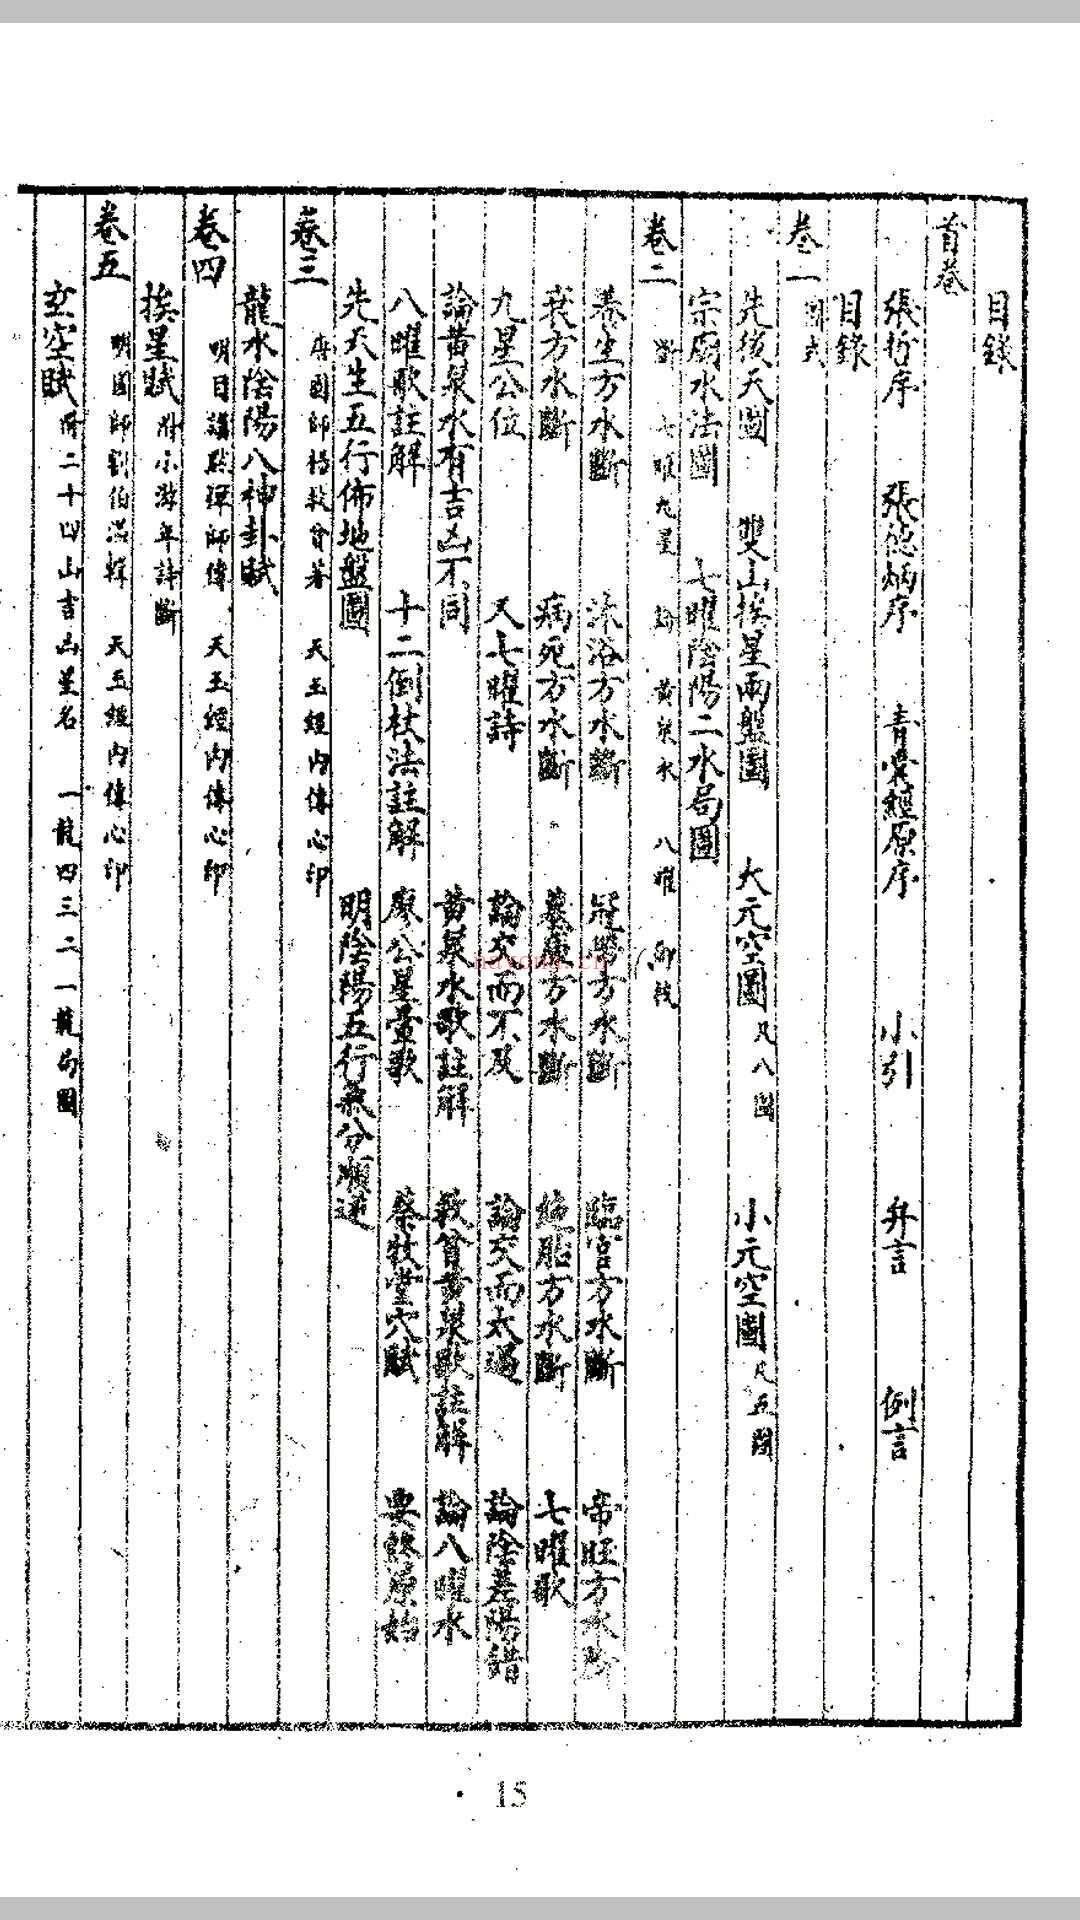 目錄
首卷
張哲序 張德炳序 青囊經原序 小引 弁言 例言
目錄
卷一 圖式
先後天圖 雙山挨星兩盤圖 大元空圖 凡八圖 小元空圖 凡五圖
宗廟水法圖 七曜陰陽二水局圖
卷二 斷 七曜九星 論 黃泉水 八曜
養生方水斷 沐浴方水斷 冠帶方水斷 臨官方水斷 帝旺方水斷
衰方水斷 病死方水斷 墓庫方水斷 絶胎方水斷 七曜歌
九星公位 天七曜詩 論交而不及 論交而太過 論陰差陽錯
論黃泉水有吉凶不同 黃泉水歌註解 救貧黃泉歌註解 論八曜水
八曜歌註解 十二倒杖法註解 廖公星暈歌 蔡牧堂穴賦 要終原始
先天生五行佈地盤圖 明陰陽五行氣分順逆
卷三 唐國師楊救貧著 天玉經內傳心印
龍水陰陽八神卦賦
卷四 明目講 禪師傳 天玉經內傳心印
挨星賦 附小游年訣斷
卷五 明國師劉伯溫輯 天玉經內傳心印
玄空賦 附二十四山吉凶星名 一龍四三二一龍局圖
nayona.cn
15